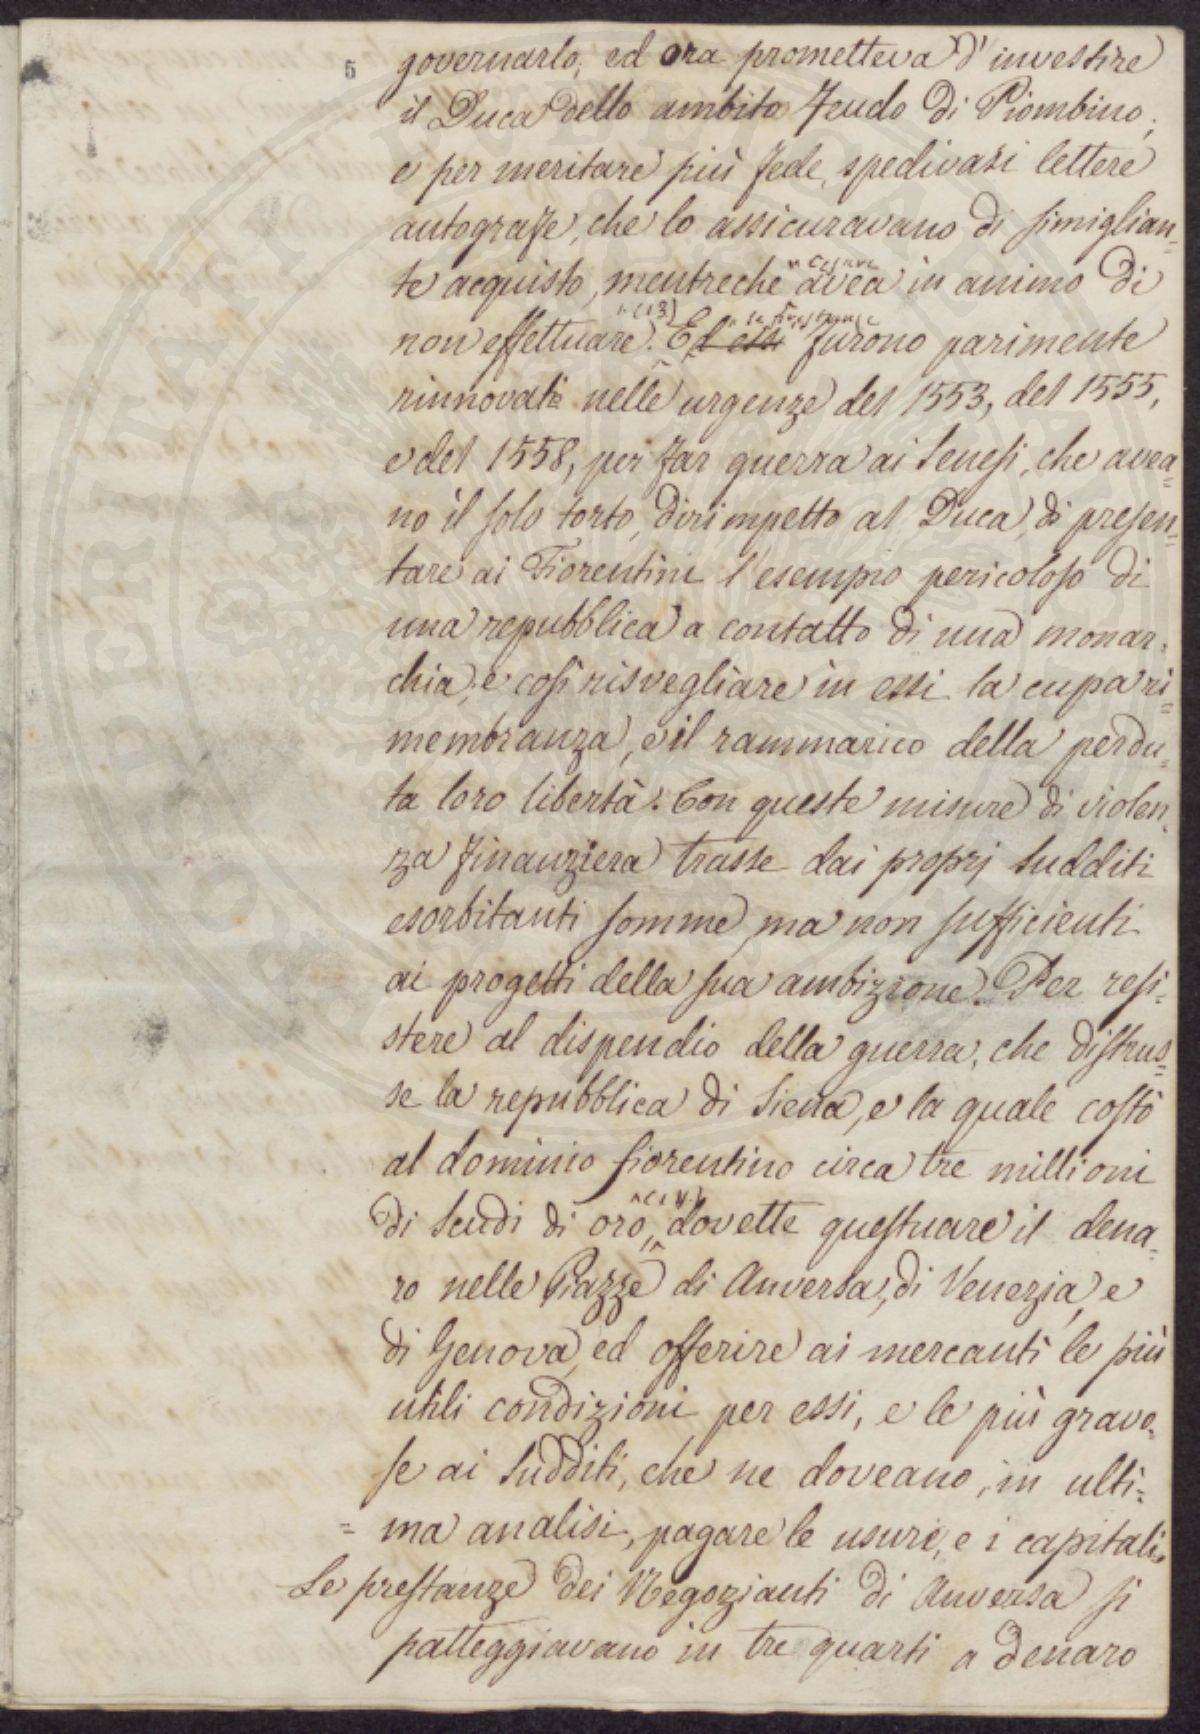 5
governarlo; ed ora prometteva d'investire
il Duca dello ambito Feudo di Piombino,
e per meritare più fede, spedivasi lettere
autografe, che lo assicuravano di simiglian=
te acquisto, mentreche Cesare avea in animo di
non effettuare (13). Ed essi le prestanze furono parimente
rinnovate nelle urgenze del 1553, del 1555,
e del 1558, per far guerra ai Senesi, che avea=
no il solo torto, dirimpetto al Duca, di presen=
tare ai Fiorentini l'esempio pericoloso di
una repubblica a contatto di una monar=
chia, e così risvegliare in essi la cupa ri=
membranza, e il rammarico della perdu=
ta loro libertà. Con queste misure di violen=
za finanziera trasse dai proprj sudditi
esorbitanti somme, ma non sufficienti
ai progetti della sua ambizione. Per resi=
stere al dispendio della guerra, che distrus=
se la repubblica di Siena, e la quale costò
al dominio fiorentino circa tre millioni
di Scudi di oro (14), dovette questuare il dena=
ro nelle Piazze di Anversa, di Venezia, e
di Genova, ed offerire ai mercanti le più
utili condizioni per essi, e le più gravo=
se ai Sudditi, che ne doveano, in ulti=
= ma analisi, pagare le usure, e i capitali.
Le prestanze dei Negozianti di Anversa si
patteggiavano in tre quarti a denaro